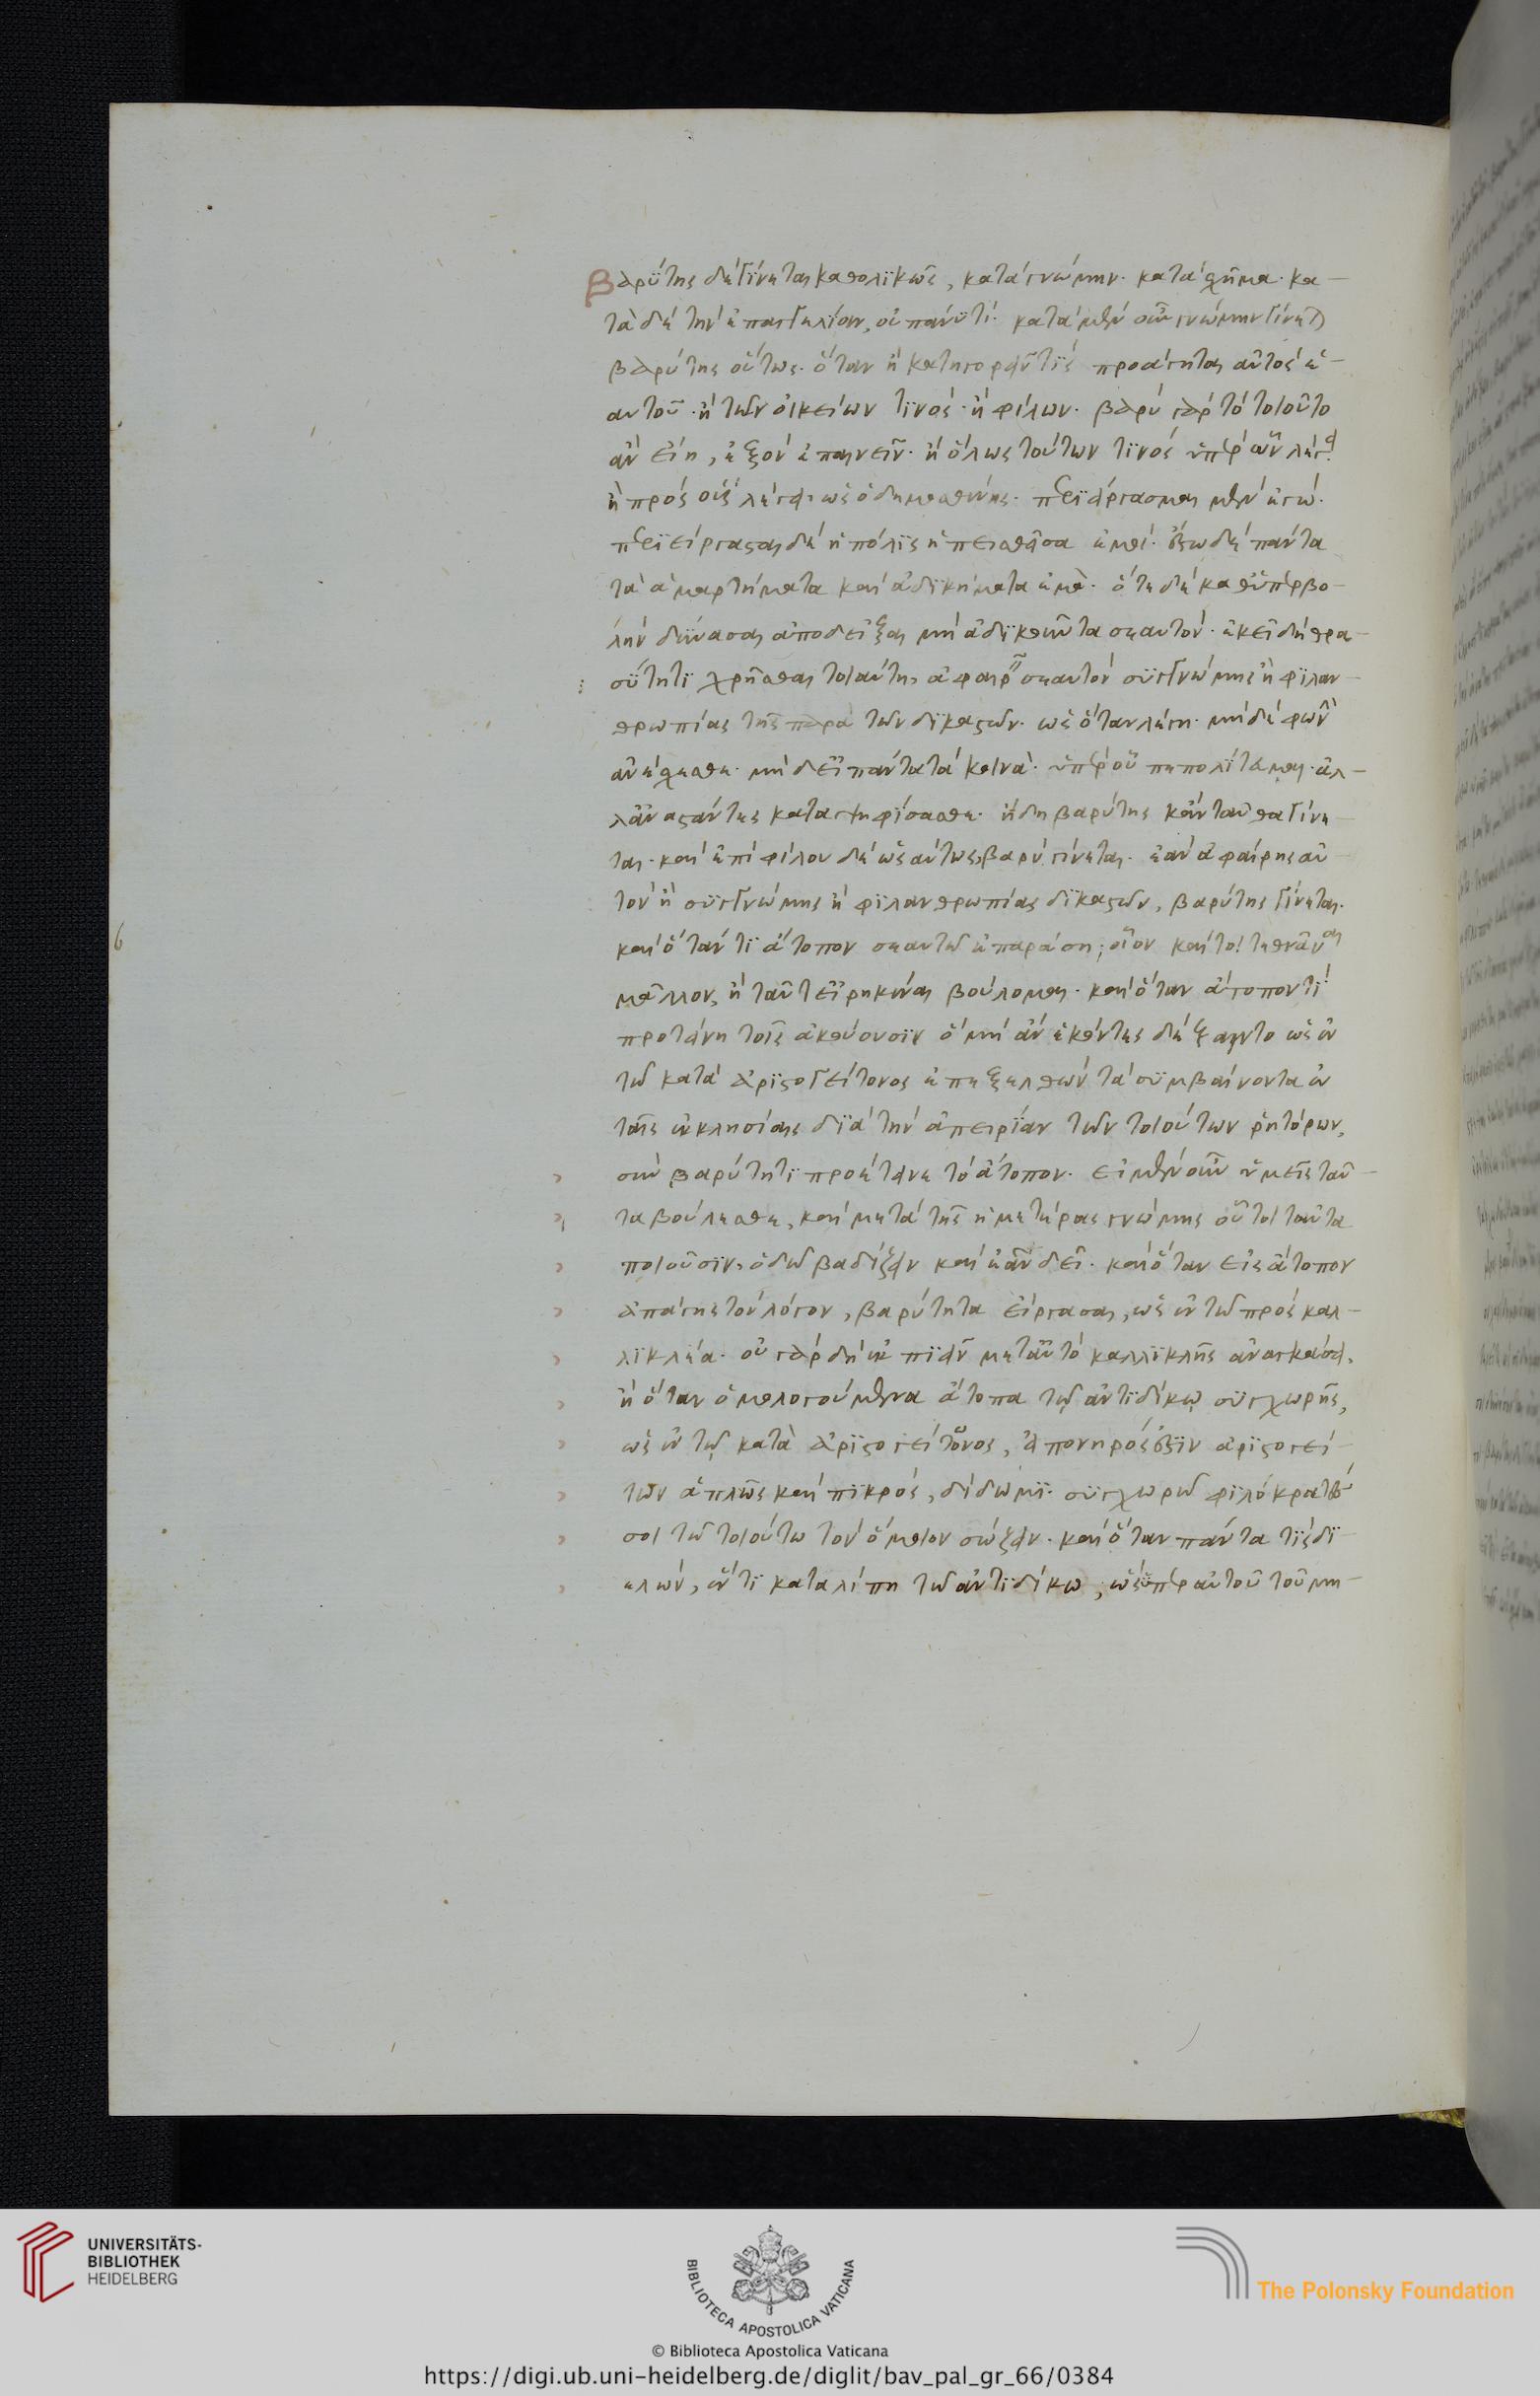 βαρύτης δὲ γίνεται καθολικῶς, κατὰ γνώμην· κατὰ σχῆμα· κα-
τὰ δὲ τὴν ἐπαγγελίαν, οὐ πάνυ τί· κατὰ μὲν οὖν γνώμην γίνεται
βαρύτης οὕτως· ὅταν ἢ κατηγορεῖν τίς προάγηται αὐτὸς ἑ-
αυτοῦ· ἢ τῶν οἰκείων τινὸς· ἢ φίλων· βαρὺ γὰρ τὸ τοιοῦτο
ἂν εἴη, ἐξὸν ἐπαινεῖν· ἢ ὅλως τούτων τινὸς ὑπὲρ ὧν λέγει
ἢ πρὸς οὓς λέγει· ὡς ὁ δημοσθένης· περιείργασμαι μὲν ἐγώ·
περιείργασται δὲ ἡ πόλις ἡ πεισθεῖσα ἐμοί· ἔξω δὲ πάντα
τὰ ἁμαρτήματα καὶ ἀδικήματα ἐμὲ· ὅτε δὲ καθ' ὑπερβο-
λὴν δύνασαι ἀποδεῖξαι μὴ ἀδικοῦντα σεαυτὸν· ἐκεῖ δὴ θρα-
σύτητι χρῆσθαι τοιαύτη, ἀφαιρεῖ σεαυτὸν συγγνώμης ἢ φιλαν-
θρωπίας τῆς παρὰ τῶν δικαστῶν· ὡς ὅταν λέγη· μηδὲ φωνὴν
ἀνέχεσθε· μὴ δεῖ πάντα τὰ κοινὰ· ὑπὲρ οὗ πεπολίτευμαι· ἀλ-
λ' ἀναστάντες καταψηφίσασθε· ἤδη βαρύτης κἀνταῦθα γίνε-
ται· καὶ ἐπὶ φίλου δὲ ὡσαύτως, βαρὺ γίνεται· ἐὰν ἀφαίρης αὐ-
τὸν ἢ συγγνώμης ἢ φιλανθρωπίας δικαστῶν, βαρύτης γίνεται·
καὶ ὅταν τι ἄτοπον σεαυτῶ ἐπαράση, οἷον καί τοι τεθνᾶναι
μᾶλλον, ἢ ταῦτ' εἰρηκέναι βούλομαι· καὶ ὅταν ἄτοπον τὶ
προτείνη τοῖς ἀκούουσιν ὃ μὴ ἂν ἑκόντες δέξαιντο ὡς ἐν
τῶ κατὰ ἀριστογείτονος ἐπεξελθὼν τὰ συμβαίνοντα ἐν
ταῖς ἐκκλησίαις διὰ τὴν ἀπειρίαν τῶν τοιούτων ῥητόρων,
σὺν βαρύτητι προέτεινε τὸ ἄτοπον· εἰ μὲν οὖν ὑμεῖς ταῦ-
τα βούλεσθε, καὶ μετὰ τῆς ἡμετέρας γνώμης οὗτοι ταῦτα
ποιοῦσιν, ὁδῶ βαδίζειν καὶ ἐᾶν δεῖ· καὶ ὅταν εἰς ἄτοπον
ἀπάγης τὸν λόγον, βαρύτητα εἴργασαι, ὡς ἐν τῶ πρὸς καλ-
λικλέα· οὐ γὰρ δὴ κἀ πιεῖν με ταὐτὸ καλλικλῆς ἀναγκάσει,
ἢ ὅταν ὁμολογούμενα ἄτοπα τῷ ἀντιδίκῳ συγχωρῆς,
ὡς ἐν τῷ κατὰ ἀριστογείτονος, εἰ πονηρός ἐστιν ἀριστογεί-
των ἁπλῶς καὶ πικρὸς, δίδωμι· συγχωρῶ φιλόκρατες
σοὶ τῶ τοιούτω τὸν ὅμοιον σώζειν· καὶ ὅταν πάντα τίς δι-
ελὼν, ἕν τι καταλίπη τῶ ἀντιδίκω, ὡς ὑπὲρ αὐτοῦ τοῦ μη-
6
UNIVERSITÄTS-
BIBLIOTHEK
HEIDELBERG
BIBLIOTECA APOSTOLICA VATICANA
The Polonsky Foundation
© Biblioteca Apostolica Vaticana
https://digi.ub.uni-heidelberg.de/diglit/bav_pal_gr_66/0384